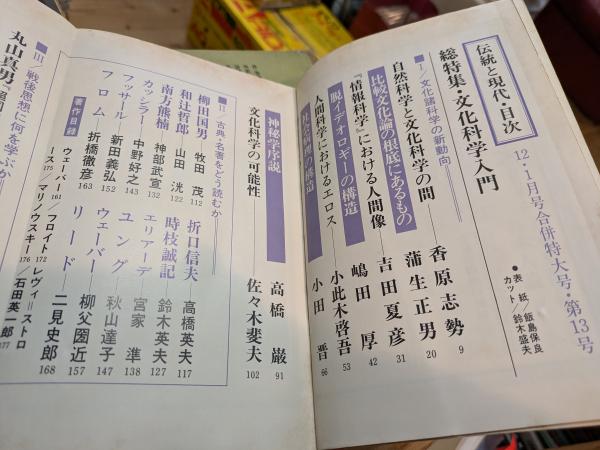 伝統と現代・目次
12・1月号合併特大号・第13号
●表紙/飯島保良
カット/鈴木盛夫
総特集・文化科学入門
■I/文化諸科学の新動向
自然科学と文化科学の間 香原志勢 9
比較文化論の根底にあるもの 蒲生正男 20
『情報科学』における人間像 吉田夏彦 31
脱イデオロギーの構造 嶋田厚 42
人間科学におけるエロス 小此木啓吾 53
の構造 小田晋 66
神秘学序説 高橋巖 91
文化科学の可能性 佐々木斐夫 102
■II/古典・名著をどう読むか
柳田国男 牧田茂 112
折口信夫 高橋英夫 117
和辻哲郎 山田洸 122
時枝誠記 鈴木英夫 127
南方熊楠 神部武宣 132
エリアーデ 宮家準 138
カッシラー 中野好之 143
ユング 秋山達子 147
フッサール 新田義弘 152
ウェーバー 柳父圀近 157
フロム 折橋徹彦 163
リード 二見史郎 168
著作目録
ウェーバー161/フロイト172/レヴィ=ストロ
ース175/マリノウスキー176/石田英一郎
177
■III/戦後思想に何を学ぶか
丸山真男『